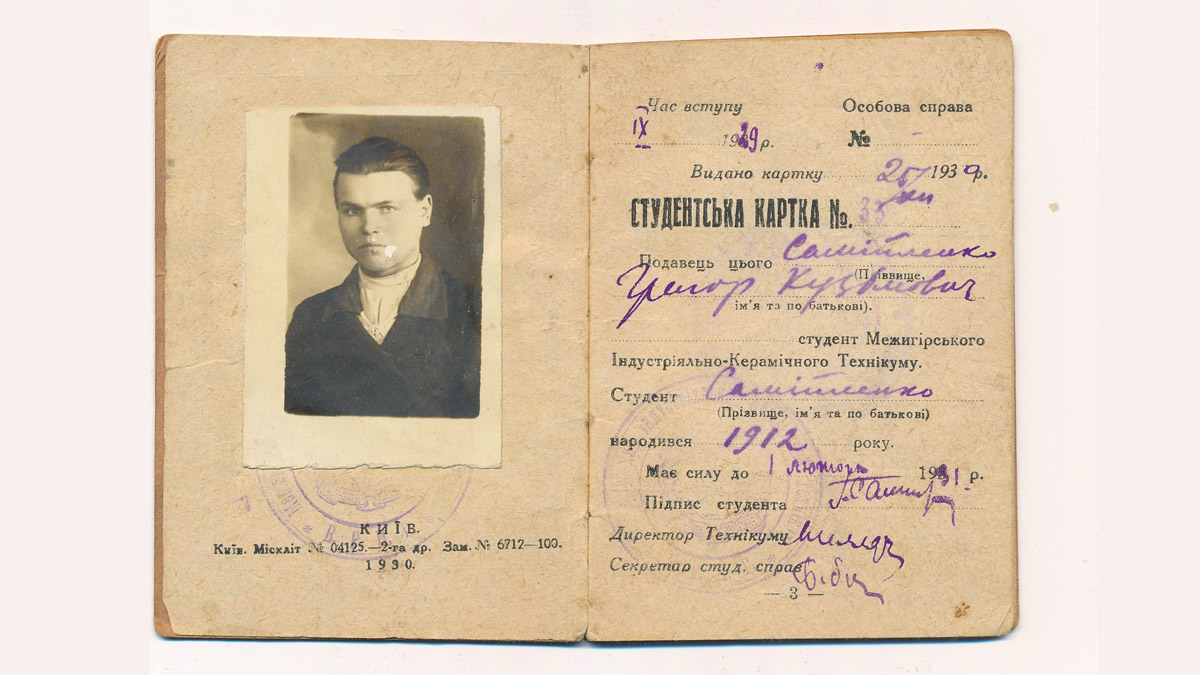 КИЇВ.
Київ. Міскліт № 04125.—2-га др. Зам. № 6712—100.
1930.
Час вступу
IX 1929 р.
Особова справа
№
Видано картку 25/ 1930 р.
СТУДЕНТСЬКА КАРТКА №. 33
Подавець цього Самітленко
(Прізвище,
Григор Кузьмович
ім'я та по батькові).
студент Межигірського
Індустріяльно-Керамічного Технікуму.
Студент Самітленко
(Прізвище, ім'я та по батькові)
народився 1912 року.
Має силу до 1 лютого 1931 р.
Підпис студента
Директор Технікуму
Секретар студ. справ
— 3 —